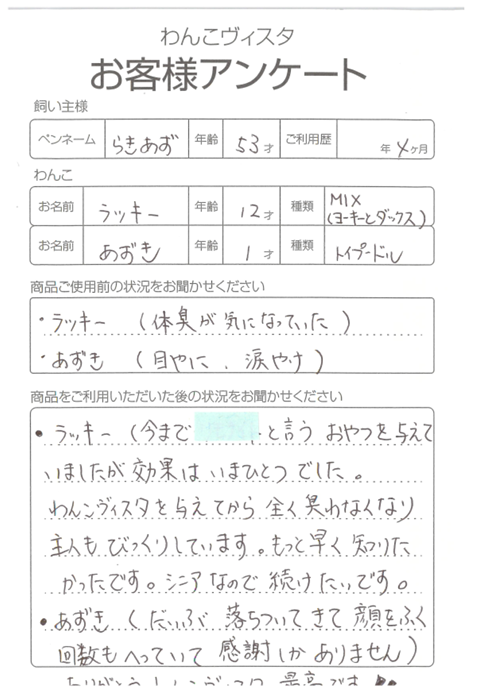 わんこヴィスタ
お客様アンケート
飼い主様
ペンネーム らきあず 年齢 53才 ご利用歴 年4ヶ月
わんこ
お名前 ラッキー 年齢 12才 種類 MIX (ヨーキーとダックス)
お名前 あずき 年齢 1才 種類 トイプードル
商品ご使用前の状況をお聞かせください
・ラッキー (体臭が気になっていた)
・あずき (目やに、涙やけ)
商品をご利用いただいた後の状況をお聞かせください
・ラッキー (今まで と言うおやつを与えて
いましたが効果はいまひとつでした。
わんこヴィスタを与えてから全く臭わなくなり
主人もびっくりしています。もっと早く知りた
かったです。シニアなので続けたいです。
・あずき (だいぶ落ちついてきて顔をふく
回数もへっていて感謝しかありません)